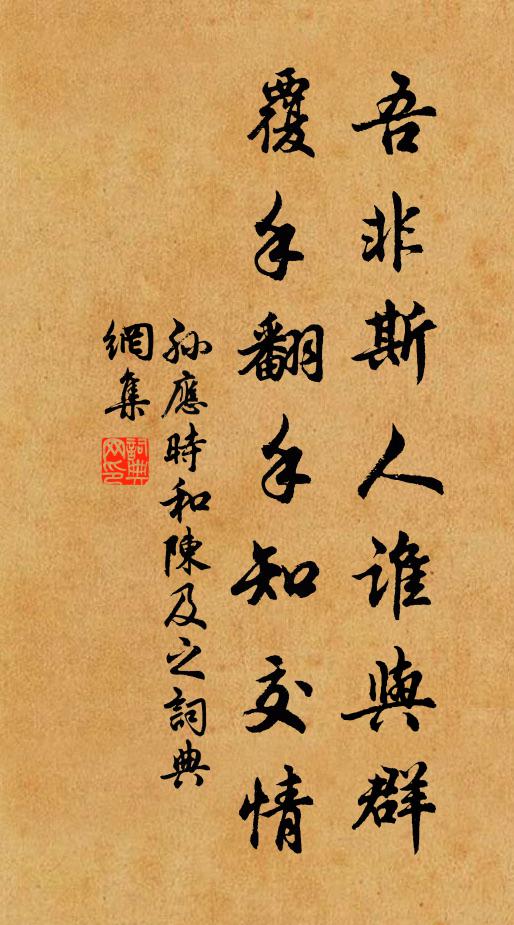 吾非斯人誰與群
覆手翻手知交情
孫應時和陳及之詞典
網集
詞典
网印